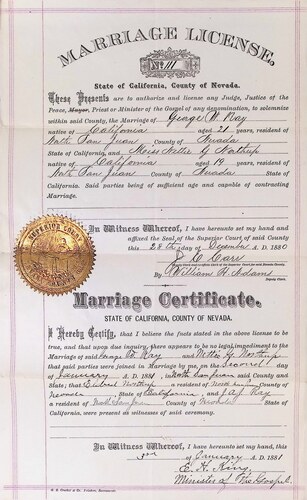 MARRIAGE LICENSE,
No. 111
State of California, County of Nevada.
These Presents are to authorize and license any Judge, Justice of the
Peace, Mayor, Priest or Minister of the Gospel of any denomination, to solemnize
within said County, the Marriage of George W. Ray
native of California aged 21 years, resident of
North San Juan County of Nevada
State of California, and Miss Nettie G Northup
native of California aged 19 years, resident of
North San Juan County of Nevada State of
California. Said parties being of sufficient age and capable of contracting
Marriage.
In Witness Whereof, I have hereunto set my hand and
affixed the Seal of the Superior Court of said County
this 28th day of December A. D. 1880
Carr
By William H. Adams
Deputy Clerk.
SUPERIOR COURT
Marriage Certificate.
STATE OF CALIFORNIA, COUNTY OF NEVADA.
I Hereby Certify, that I believe the facts stated in the above license to be
true, and that upon due inquiry, there appears to be no legal impediment to the
Marriage of said George W. Ray and Nettie G. Northup
that said parties were joined in Marriage by me, on the Second day
of January A. D. 1881, in North San Juan County and
State; that Northup a resident of North San Juan County of
Nevada State of California, and Ray
a resident of North San Juan County of Nevada State of
California, were present as witnesses of said ceremony.
In Witness Whereof, I have hereunto set my hand, this
2nd January A. D. 1881
E. H. King,
Minister of The Gospel.